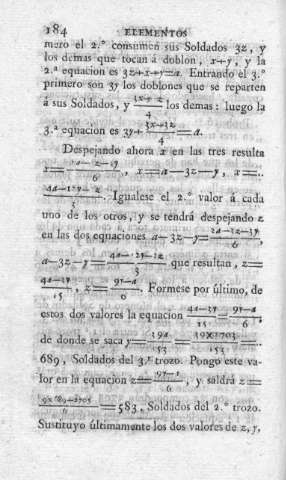 184 ELEMENTOS
mero el 2.º consumen sus Soldados 3z, y
los demas que tocan á doblon, x+y, y la
2.ª equacion es 3z+x+y=a. Entrando el 3.º
primero son 3y los doblones que se reparten
á sus Soldados, y los demas: luego la
4
3.ª equacion es 3y+ =a.
4
Despejando ahora x en las tres resulta
x= , x=a-3z-y, x=..
. Igualese el 2.º valor á cada
3
uno de los otros, y se tendrá despejando z
en las dos equaciones a-3z-y=
6
a-3z-y= que resultan, z=
3
, z= . Formese por último, de
15 6
estos dos valores la equacion
15 6
de donde se saca y= = ..
153 153
689, Soldados del 3.º trozo. Pongo este va-
lor en la equacion z= , y saldrá z=
6
=583, Soldados del 2.º trozo.
6
Sustituyo últimamente los dos valores de z, y,